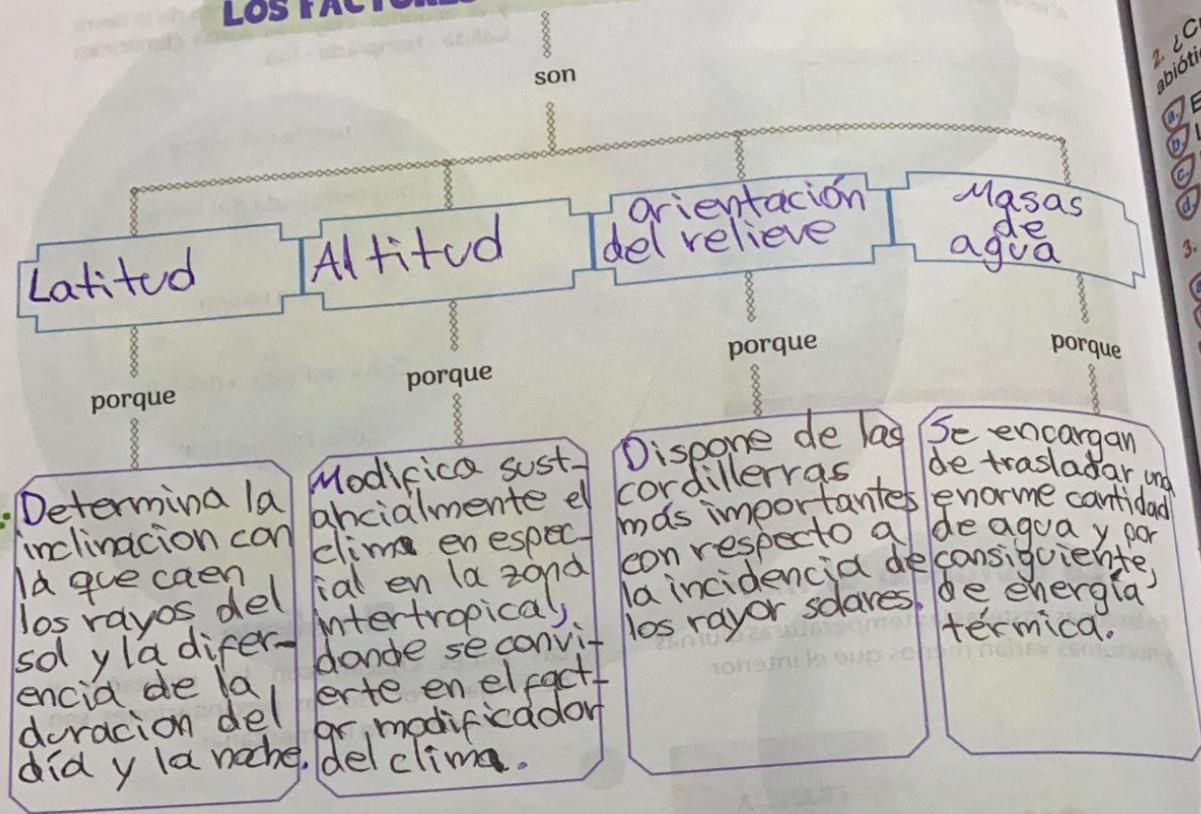 LOS
son
Latitud
Altitud
orientación
del relieve
Masas
de
agua
porque
porque
porque
porque
Determina la
inclinacion con
la que caen
los rayos del
sol y la difer-
encia de la
duracion del
día y la noche.
Modifica sust-
ancialmente el
clima en espec-
ial en la zona
intertropical,
donde se convi-
erte en el fact-
or modificador
del clima.
Dispone de las
cordillerras
más importantes
con respecto a
la incidencia de
los rayor solares.
Se encargan
de trasladar una
enorme cantidad
de agua y por
consiguiente,
de energía
térmica.
2. ¿C
abióti
a. E
b.
c.
d.
3.